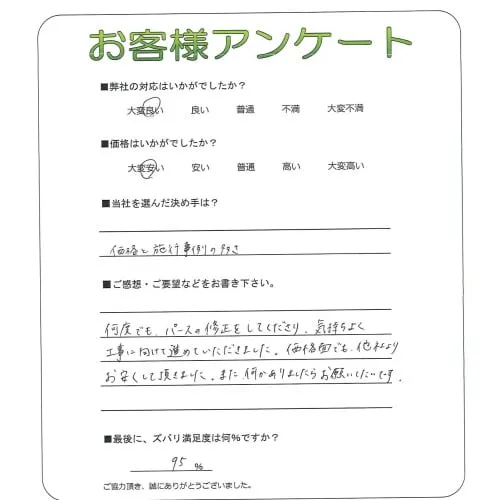 お客様アンケート
■弊社の対応はいかがでしたか？
大変良い 良い 普通 不満 大変不満
■価格はいかがでしたか？
大変安い 安い 普通 高い 大変高い
■当社を選んだ決め手は？
価格と施行事例の多さ
■ご感想・ご要望などをお書き下さい。
何度でも、パースの修正をしてくださり、気持ちよく
工事に向けて進めていただきました。価格面でも、他社より
お安くして頂きました。また何かありましたらお願いしたいです。
■最後に、ズバリ満足度は何％ですか？
95 ％
ご協力頂き、誠にありがとうございました。